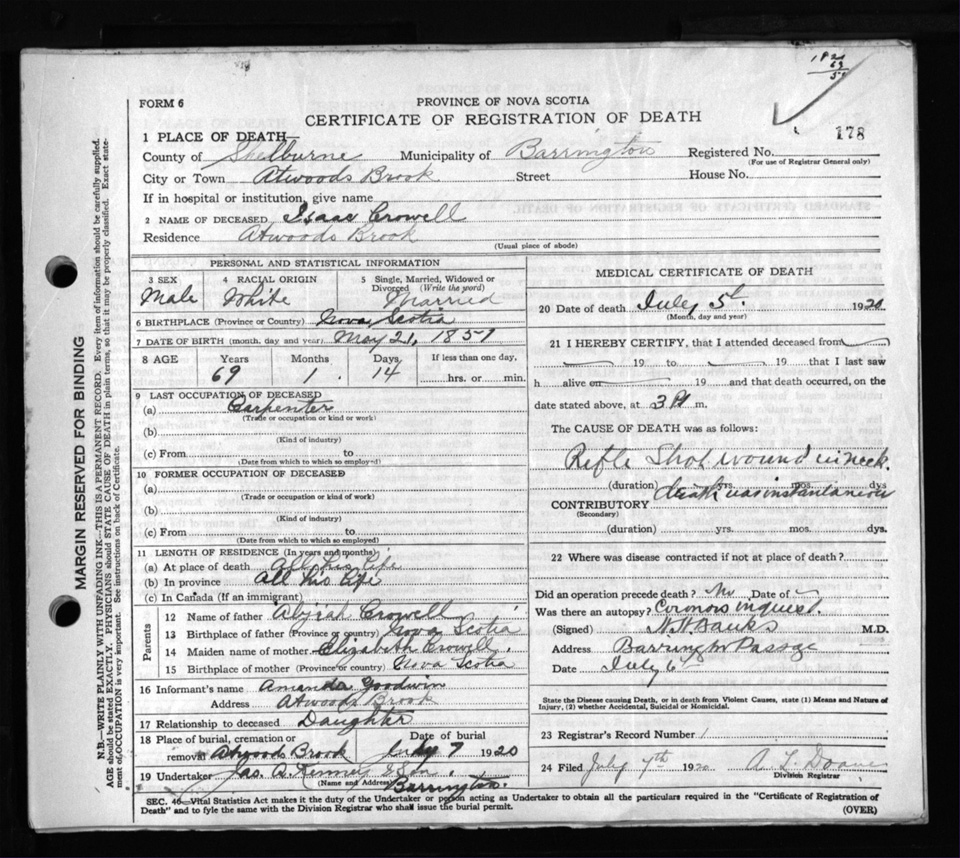 FORM 6
PROVINCE OF NOVA SCOTIA
CERTIFICATE OF REGISTRATION OF DEATH
178
1 PLACE OF DEATH—
County of Shelburne Municipality of Barrington Registered No.
(For use of Registrar General only)
City or Town Atwoods Brook Street House No.
If in hospital or institution, give name
2 NAME OF DECEASED Isaac Crowell
Residence Atwoods Brook
(Usual place of abode)
MARGIN RESERVED FOR BINDING
N.B.—WRITE PLAINLY WITH UNFADING INK—THIS IS A PERMANENT RECORD. Every item of information should be carefully supplied.
AGE should be stated EXACTLY. PHYSICIANS should STATE CAUSE OF DEATH in plain terms, so that it may be properly classified. Exact state-
ment of OCCUPATION is very important. See instructions on back of Certificate.
PERSONAL AND STATISTICAL INFORMATION
3 SEX Male
4 RACIAL ORIGIN White
5 Single, Married, Widowed or
Divorced (Write the word)
Married
6 BIRTHPLACE (Province or Country) Nova Scotia
7 DATE OF BIRTH (month, day and year) May 21, 1851
8 AGE Years Months Days If less than one day,
69 1 14 hrs. or min.
9 LAST OCCUPATION OF DECEASED
(a) Carpenter
(Trade or occupation or kind or work)
(b)
(Kind of industry)
(c) From to
(Date from which to which so employed)
10 FORMER OCCUPATION OF DECEASED
(a)
(Trade or occupation or kind of work)
(b)
(Kind of industry)
(c) From to
(Date from which to which so employed)
11 LENGTH OF RESIDENCE (In years and months)
(a) At place of death all his life
(b) In province all his life
(c) In Canada (if an immigrant)
Parents
12 Name of father Abijah Crowell
13 Birthplace of father (Province or country) Nova Scotia
14 Maiden name of mother Elizabeth Crowell
15 Birthplace of mother (Province or country) Nova Scotia
16 Informant's name Amanda Goodwin
Address Atwoods Brook
17 Relationship to deceased Daughter
18 Place of burial, cremation or Date of burial
removal Atwoods Brook July 7 1920
19 Undertaker Jas. A. & Son.
(Name and Address)
Barrington.
MEDICAL CERTIFICATE OF DEATH
20 Date of death July 5th 1920
(Month, day and year)
21 I HEREBY CERTIFY, that I attended deceased from
19 to 19 that I last saw
h alive on 19 and that death occurred, on the
date stated above, at 3 P m.
The CAUSE OF DEATH was as follows:
Rifle Shot wound in neck.
(duration) yrs. mos. dys
death was instantaneous
CONTRIBUTORY
(Secondary)
(duration) yrs. mos. dys.
22 Where was disease contracted if not at place of death?
Did an operation precede death? No Date of
Was there an autopsy? Coroners inquest.
(Signed) H H Banks M.D.
Address Barrington Passage
Date July 6
State the Disease causing Death, or in death from Violent Causes, state (1) Means and Nature of
Injury, (2) whether Accidental, Suicidal or Homicidal.
23 Registrar's Record Number 1
24 Filed July 7th 1920 A. L. Doane
Division Registrar
SEC. 40—Vital Statistics Act makes it the duty of the Undertaker or person acting as Undertaker to obtain all the particulars required in the "Certificate of Registration of
Death" and to fyle the same with the Division Registrar who shall issue the burial permit. (OVER)